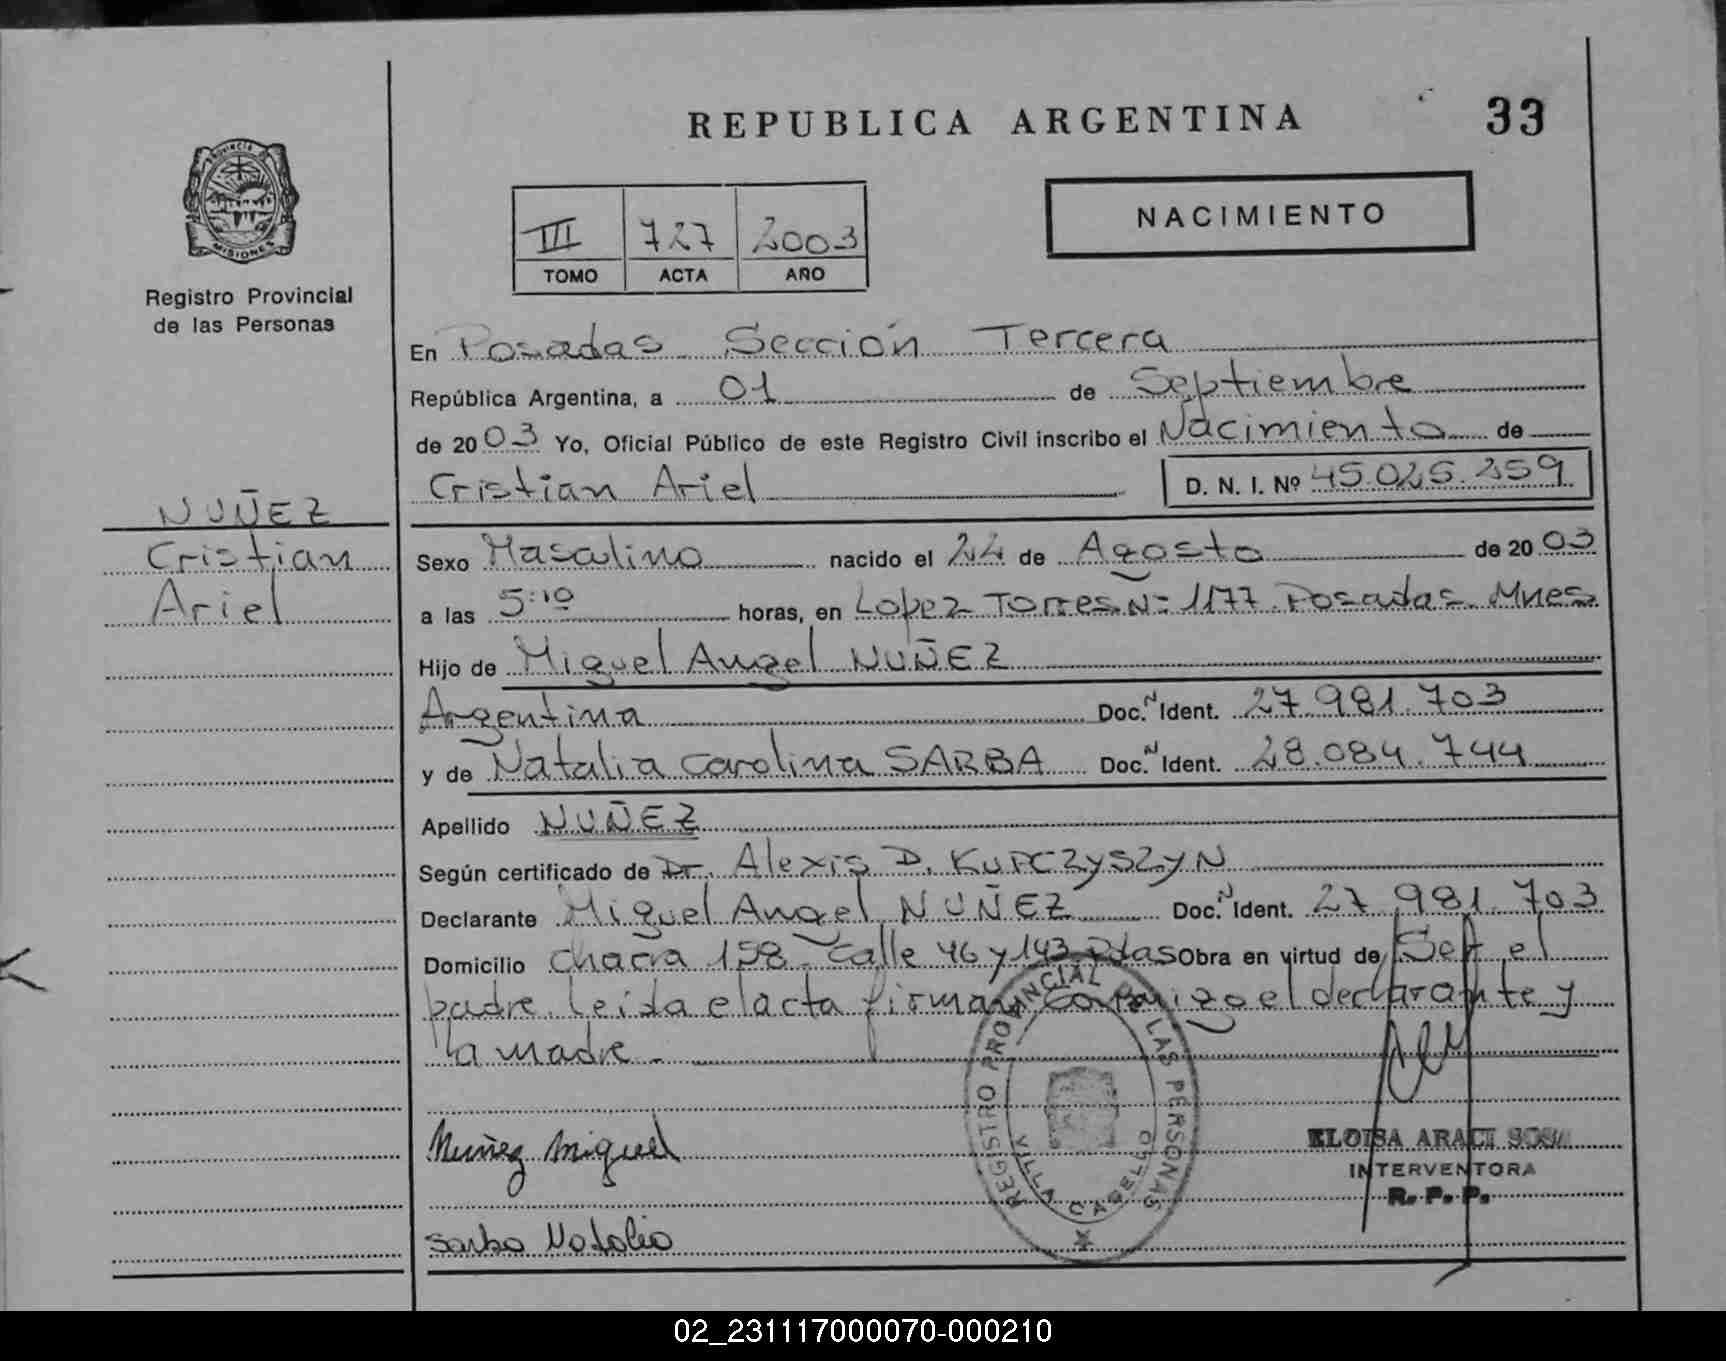 REPUBLICA ARGENTINA
33
PROVINCIA DE MISIONES
Registro Provincial
de las Personas
III 727 2003
TOMO ACTA AÑO
NACIMIENTO
En Posadas Sección Tercera
República Argentina, a 01 de Septiembre
de 2003 Yo, Oficial Público de este Registro Civil inscribo el Nacimiento de
Cristian Ariel D. N. I. Nº 45.025.259
NUÑEZ
Cristian
Ariel
Sexo Masculino nacido el 24 de Agosto de 2003
a las 5:10 horas, en Lopez Torres Nº 1177 Posadas Mnes
Hijo de Miguel Angel NUÑEZ
Argentina Doc. Ident. 27.981.703
y de Natalia Carolina SARBA Doc. Ident. 28.084.744
Apellido NUÑEZ
Según certificado de Dr. Alexis D. KUPCZYSZYN
Declarante Miguel Angel NUÑEZ Doc. Ident. 27.981.703
Domicilio Chacra 158 - Calle 46 y 143 Pdas Obra en virtud de Ser el
padre. Leida el acta firman conmigo el declarante y
la madre.-
REGISTRO PROVINCIAL LAS PERSONAS
VILLA CABELLO
Nuñez Miguel
ELOISA ARACI SOSA
INTERVENTORA
R. P. P.
Sarba Natalia
02_231117000070-000210